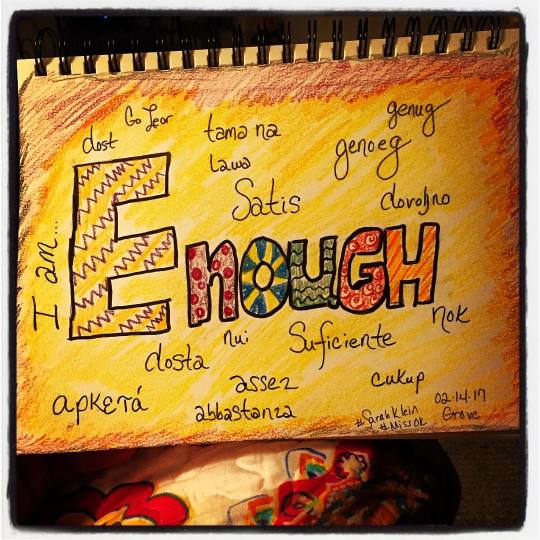 Go Leor
dost
tama na
genug
lawa
genoeg
Satis
dovoljno
I am...
Enough
nok
nui
Suficiente
dosta
assez
cukup
αρκετά
abbastanza
02.14.17
#SarahKlein
Grove
#MissOk